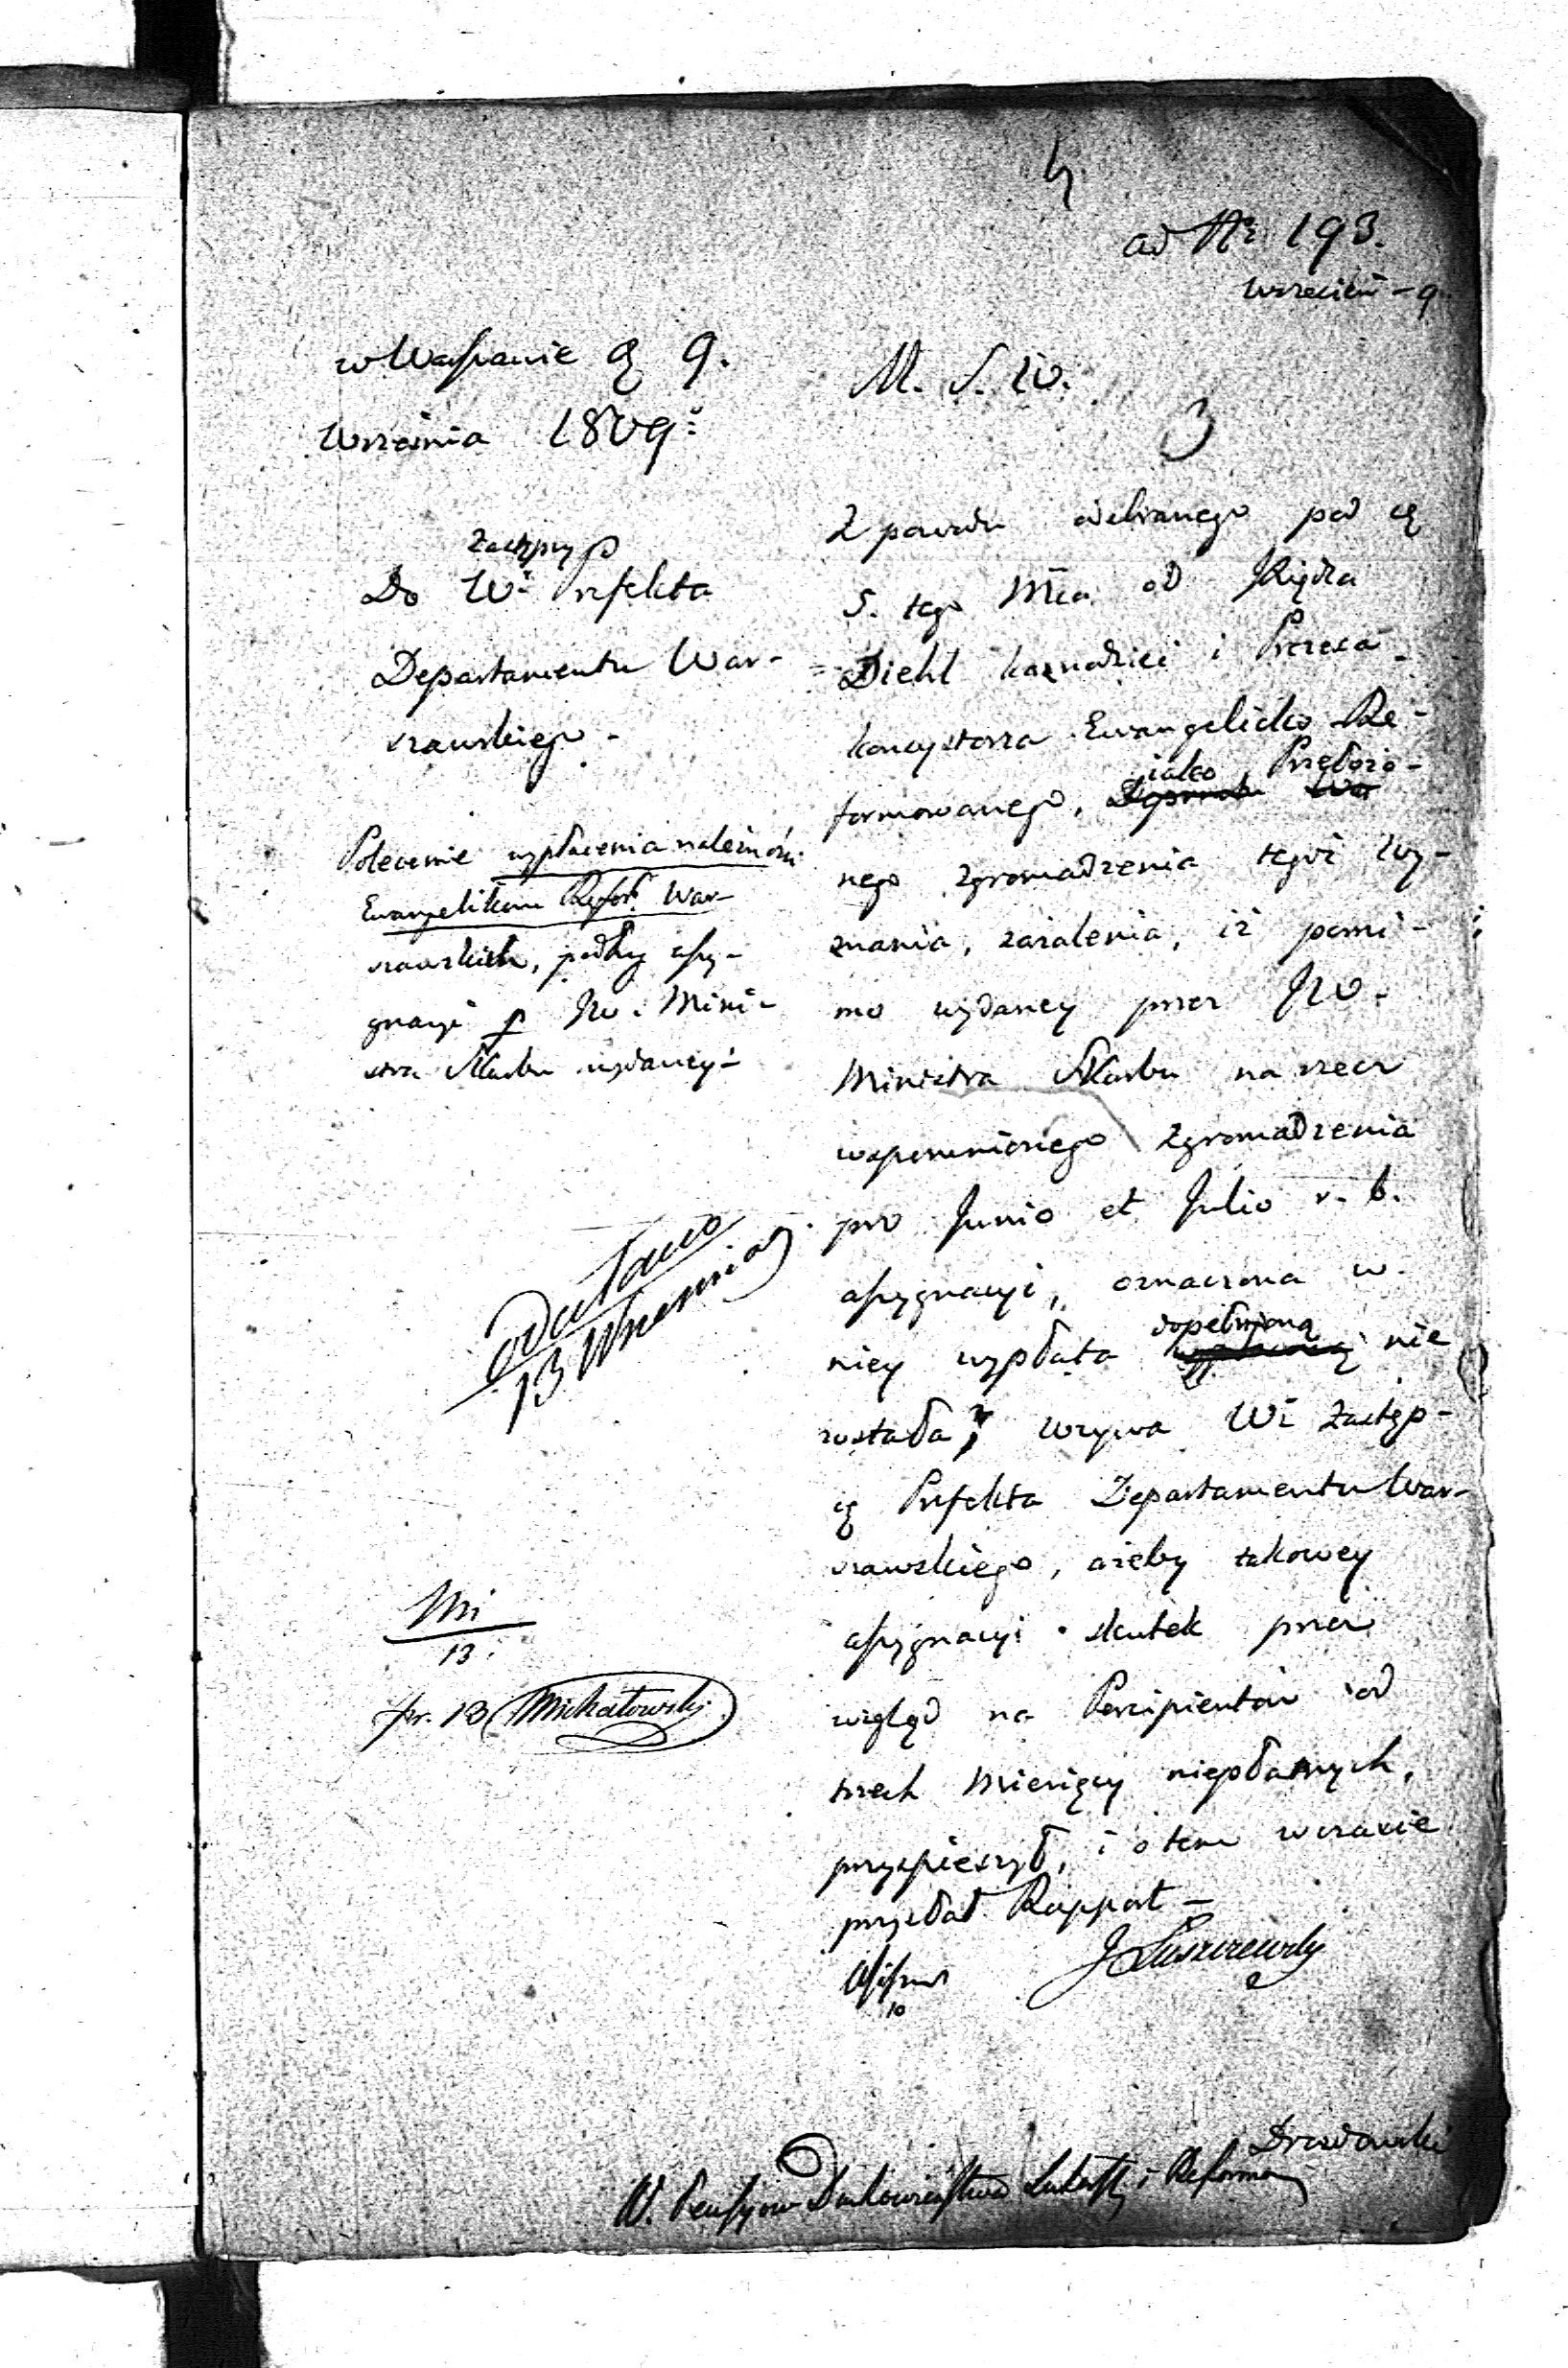 4
ad Nr 193.
wrzecień - 9
w Warszawie d 9.
Września 1809.
M. S. W.
3
Zastępcy
Do W. Prefekta
Departamentu War-
szawskiego -
Polecenie wypłacenia należności
Ewangelikom Refor. War-
szawskich, podług assy-
gnacyi p JW. Mini-
stra Skarbu wydaney -
odesłano
13 Września
Mi
13.
pr. 13 Michałowski
Z powodu odebranego pod d
5. tego Mca od Xiędza
Diehl kaznodziei i Prezesa
konsystorza Ewangelicko Re-
formowanego, iako Przełożo-
nego zgromadzenia tegoż Wy-
znania, zażalenia, iż pomi-
mo wydaney przez JW.
Ministra Skarbu na rzecz
wspomnionego Zgromadzenia
pro Junio et Julio r. b.
assygnacyi, oznaczona w
niey wypłata dopełnioną nie
została, wzywa W. Zastęp-
cę Prefekta Departamentu War-
szawskiego, ażeby takowey
assygnacyi skutek przez
wzgląd na Percipientów od
trzech Miesięcy niepłatnych,
przyspieszył, i o tem w czasie
przysłał Rapport -
10
J Łuszczewski
Drozdowski
W. Pensyow Duchowieństwa Luters. i Reform